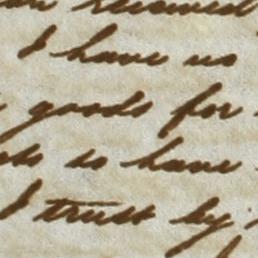 received
I have no
goods for
to have
I trust by